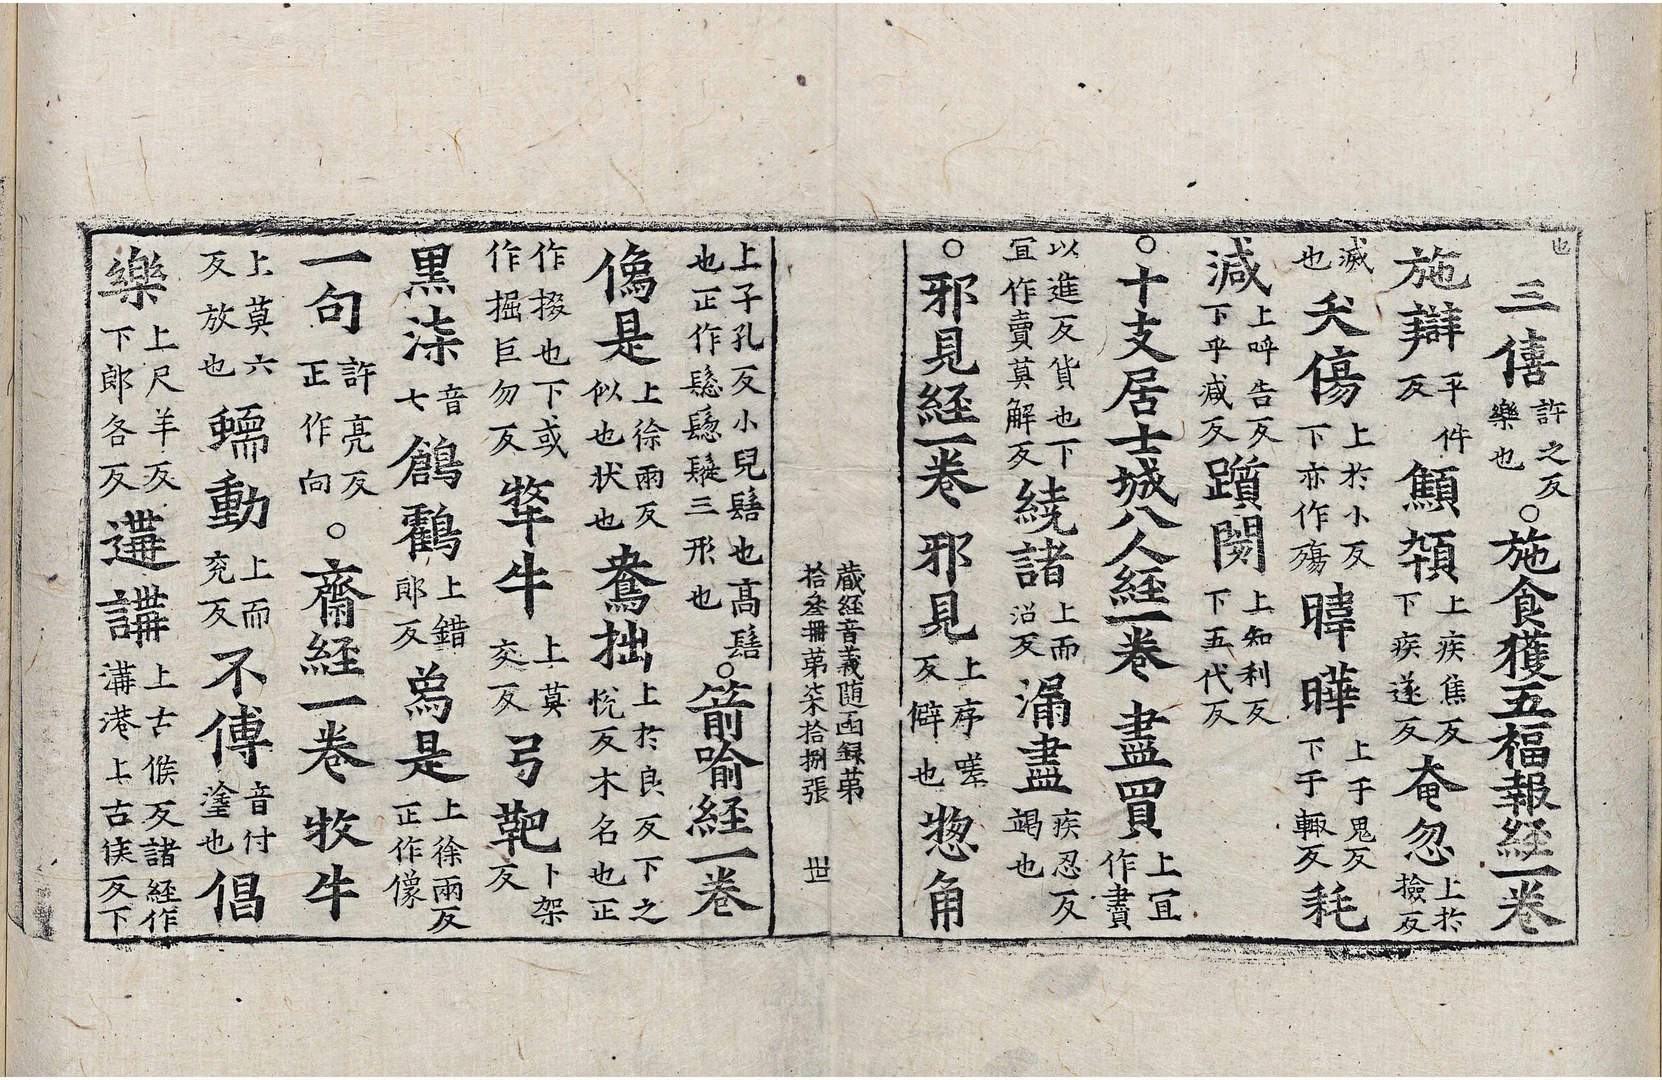 也三僖許之反樂也○施食獲五福報経一卷
施辯平件反顦顇上疾焦反下疾遂反奄忽上於撿反
滅也夭傷上於小反下亦作殤暐曄上于鬼反下于輒反耗
減上呼告反下乎減反躓閡上知利反下五代反
○十支居士城八人経一卷 盡買上冝作賣
以進反貨也下冝作賣莫解反繞諸上而沼反漏盡疾忍反竭也
○邪見経一卷 邪見上序嗟反僻也惣角
蔵経音義随函録苐拾叁冊苐柒拾捌張 丗
上子孔反小兒髻也髙髻也正作鬆鬉鬷三形也○箭喻経一卷
像是上徐兩反似也状也鴦拙上於良反下之悅反木名也正
作掇也下或作掘巨勿反犛牛上莫交反弓靶卜架反
黒柒音七鶬鸖上錯郎反為是上徐兩反正作像
一句許亮反正作向○齋経一卷 牧牛
上莫六反放也蠕動上而兖反不傅音付塗也倡
樂上尺羊反下郎各反遘講上古候反諸経作溝港上古侯反下